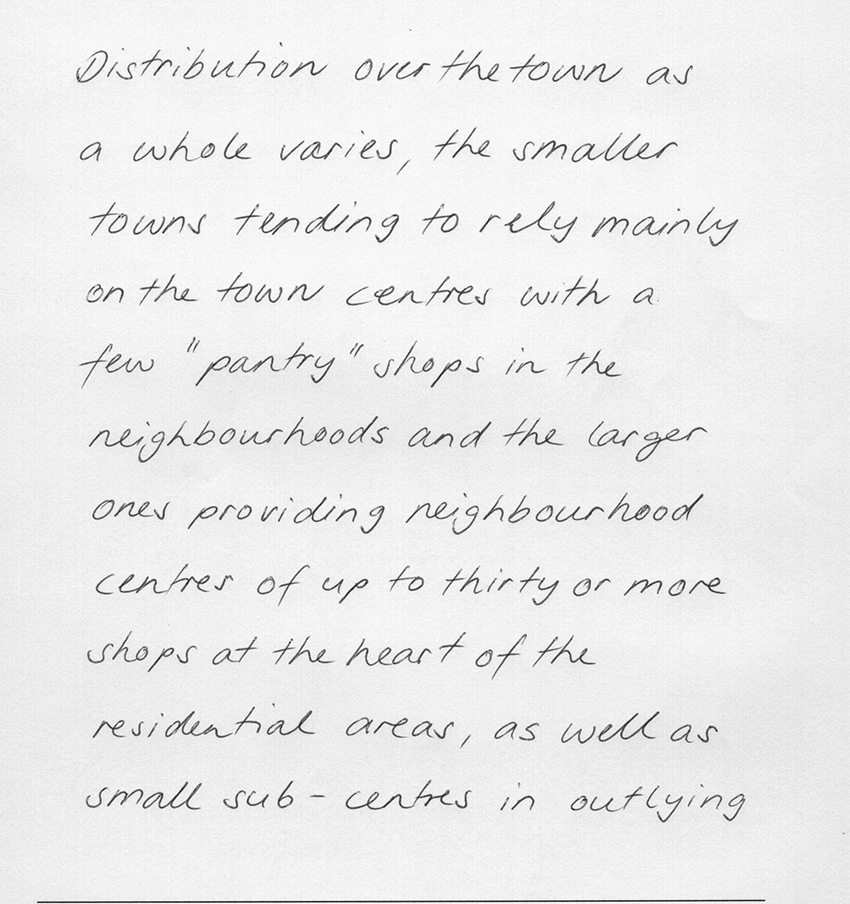 Distribution over the town as
a whole varies, the smaller
towns tending to rely mainly
on the town centres with a
few "pantry" shops in the
neighbourhoods and the larger
ones providing neighbourhood
centres of up to thirty or more
shops at the heart of the
residential areas, as well as
small sub-centres in outlying